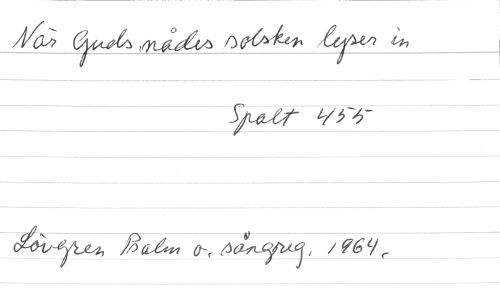 När Guds nådes solsken lyser in
Spalt 455
Lövgren Psalm o. sångreg. 1964.